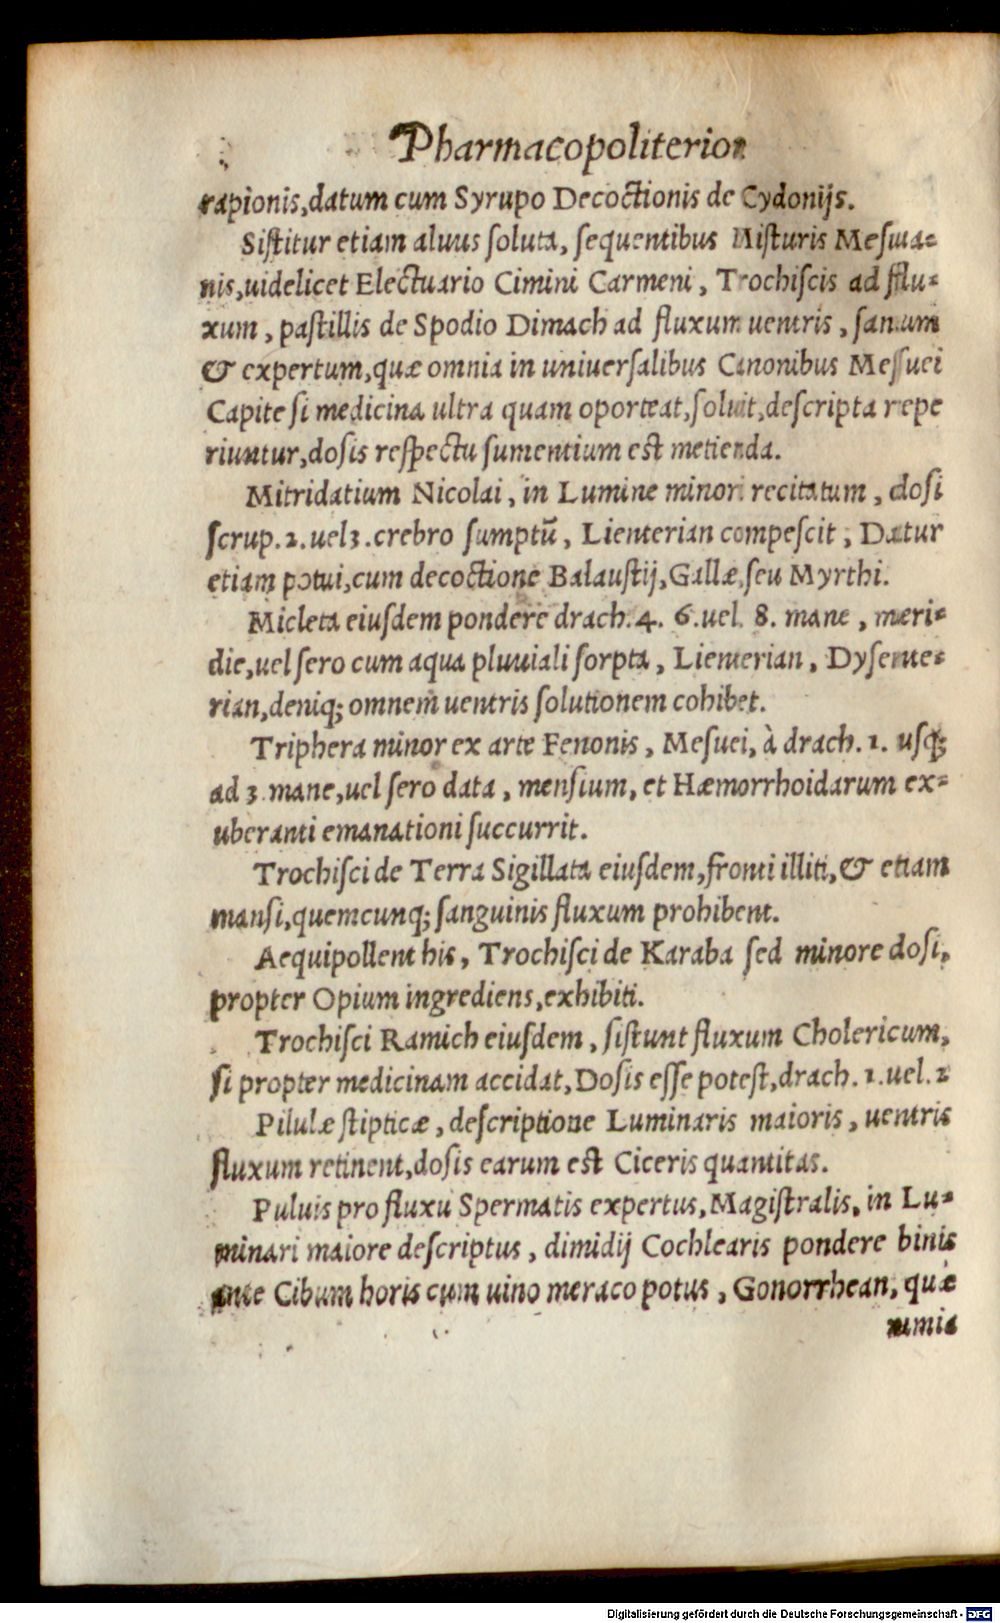 Pharmacopoliterion
rapionis, datum cum Syrupo Decoctionis de Cydonijs.
Siſtitur etiam aluus ſoluta, ſequentibus Miſturis Meſuia-
nis, uidelicet Electuario Cimini Carmeni, Trochiſcis ad flu-
xum, paſtillis de Spodio Dimach ad fluxum uentris, ſanum
& expertum, quæ omnia in uniuerſalibus Canonibus Meſſuei
Capite ſi medicina ultra quam oporteat, ſoluit, deſcripta repe
riuntur, doſis reſpectu ſumentium est metienda.
Mitridatium Nicolai, in Lumine minori recitatum, doſi
ſcrup. 2. uel 3. crebro ſumptū, Lienterian compeſcit, Datur
etiam potui, cum decoctione Balauſtij, Gallæ, ſeu Myrthi.
Micleta eiuſdem pondere drach. 4. 6. uel. 8. mane, meri-
die, uel ſero cum aqua pluuiali ſorpta, Lienterian, Dyſente-
rian, deniq; omnem uentris ſolutionem cohibet.
Triphera minor ex arte Fenonis, Meſuei, à drach. 1. uſq;
ad 3 mane, uel ſero data, menſium, et Hæmorrhoidarum ex-
uberanti emanationi ſuccurrit.
Trochiſci de Terra Sigillata eiuſdem, fronti illiti, & etiam
manſi, quemcunq; ſanguinis fluxum prohibent.
Aequipollent his, Trochiſci de Karaba ſed minore doſi,
propter Opium ingrediens, exhibiti.
Trochiſci Ramich eiuſdem, ſiſtunt fluxum Cholericum,
ſi propter medicinam accidat, Doſis eſſe poteſt, drach. 1. uel. 2
Pilulæ ſtipticæ, deſcriptione Luminaris maioris, uentris
fluxum retinent, doſis earum est Ciceris quantitas.
Puluis pro fluxu Spermatis expertus, Magiſtralis, in Lu-
minari maiore deſcriptus, dimidij Cochlearis pondere binis
ante Cibum horis cum uino meraco potus, Gonorrhean, quæ
nimia
Digitalisierung gefördert durch die Deutsche Forschungsgemeinschaft - DFG